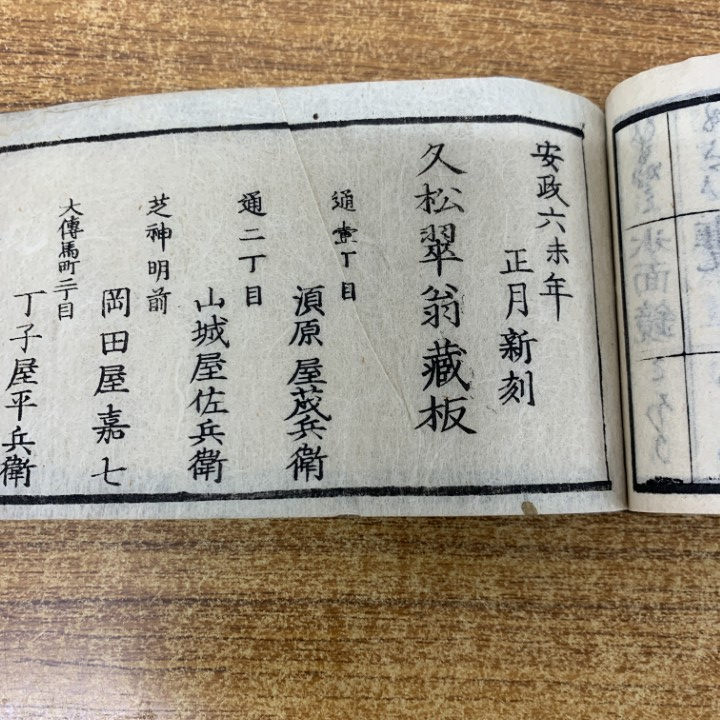 氷面鏡
安政六未年
正月新刻
久松翠翁藏板
通壹丁目
須原屋茂兵衛
通二丁目
山城屋佐兵衛
芝神明前
岡田屋嘉七
大傳馬町二丁目
丁子屋平兵衛